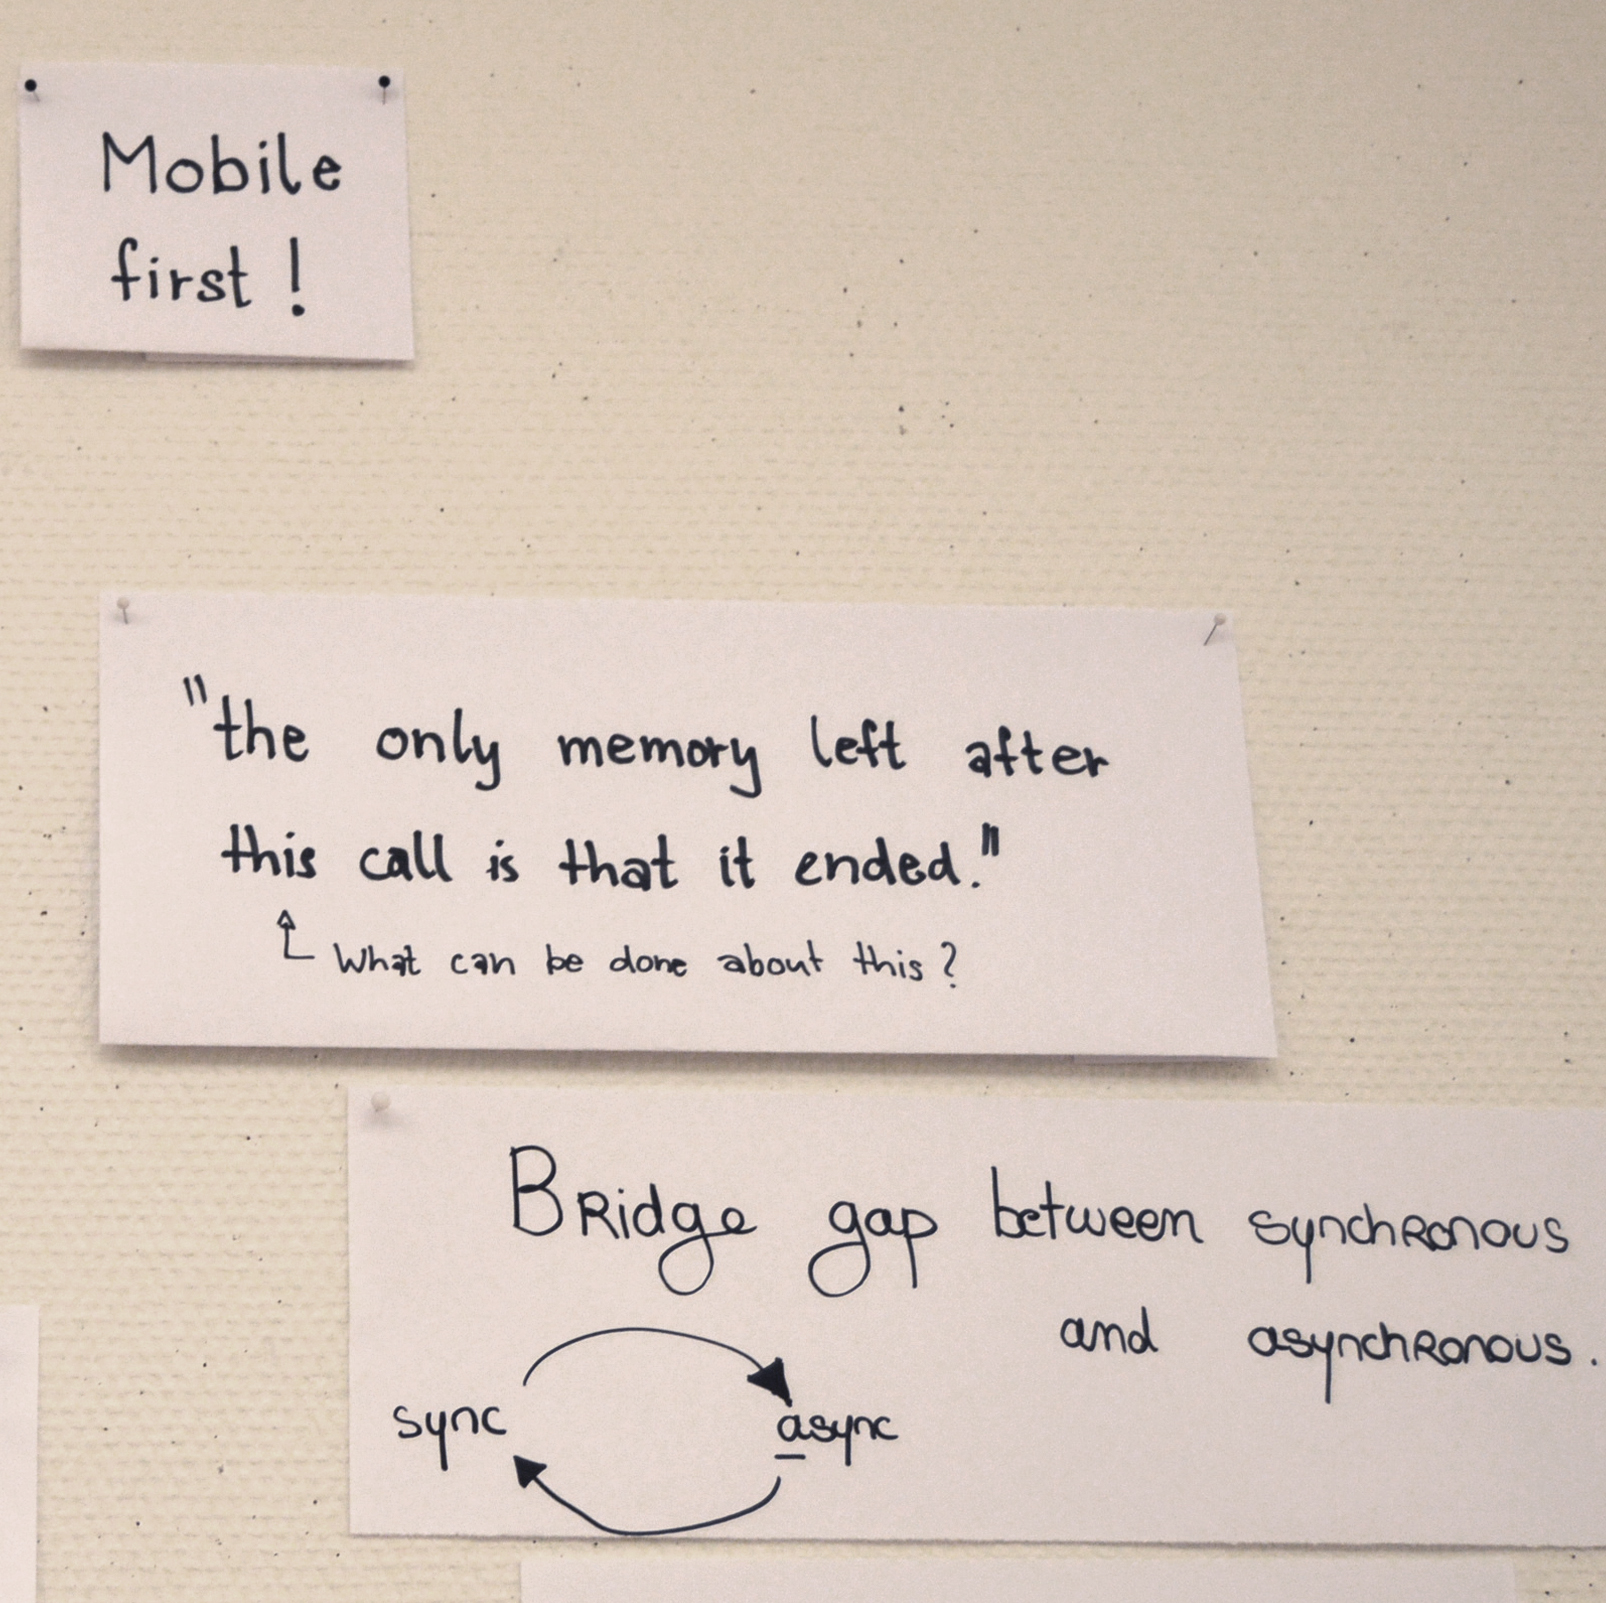 Mobile
first !
"the only memory left after
this call is that it ended."
What can be done about this ?
Bridge gap between synchronous
and asynchronous.
sync
async